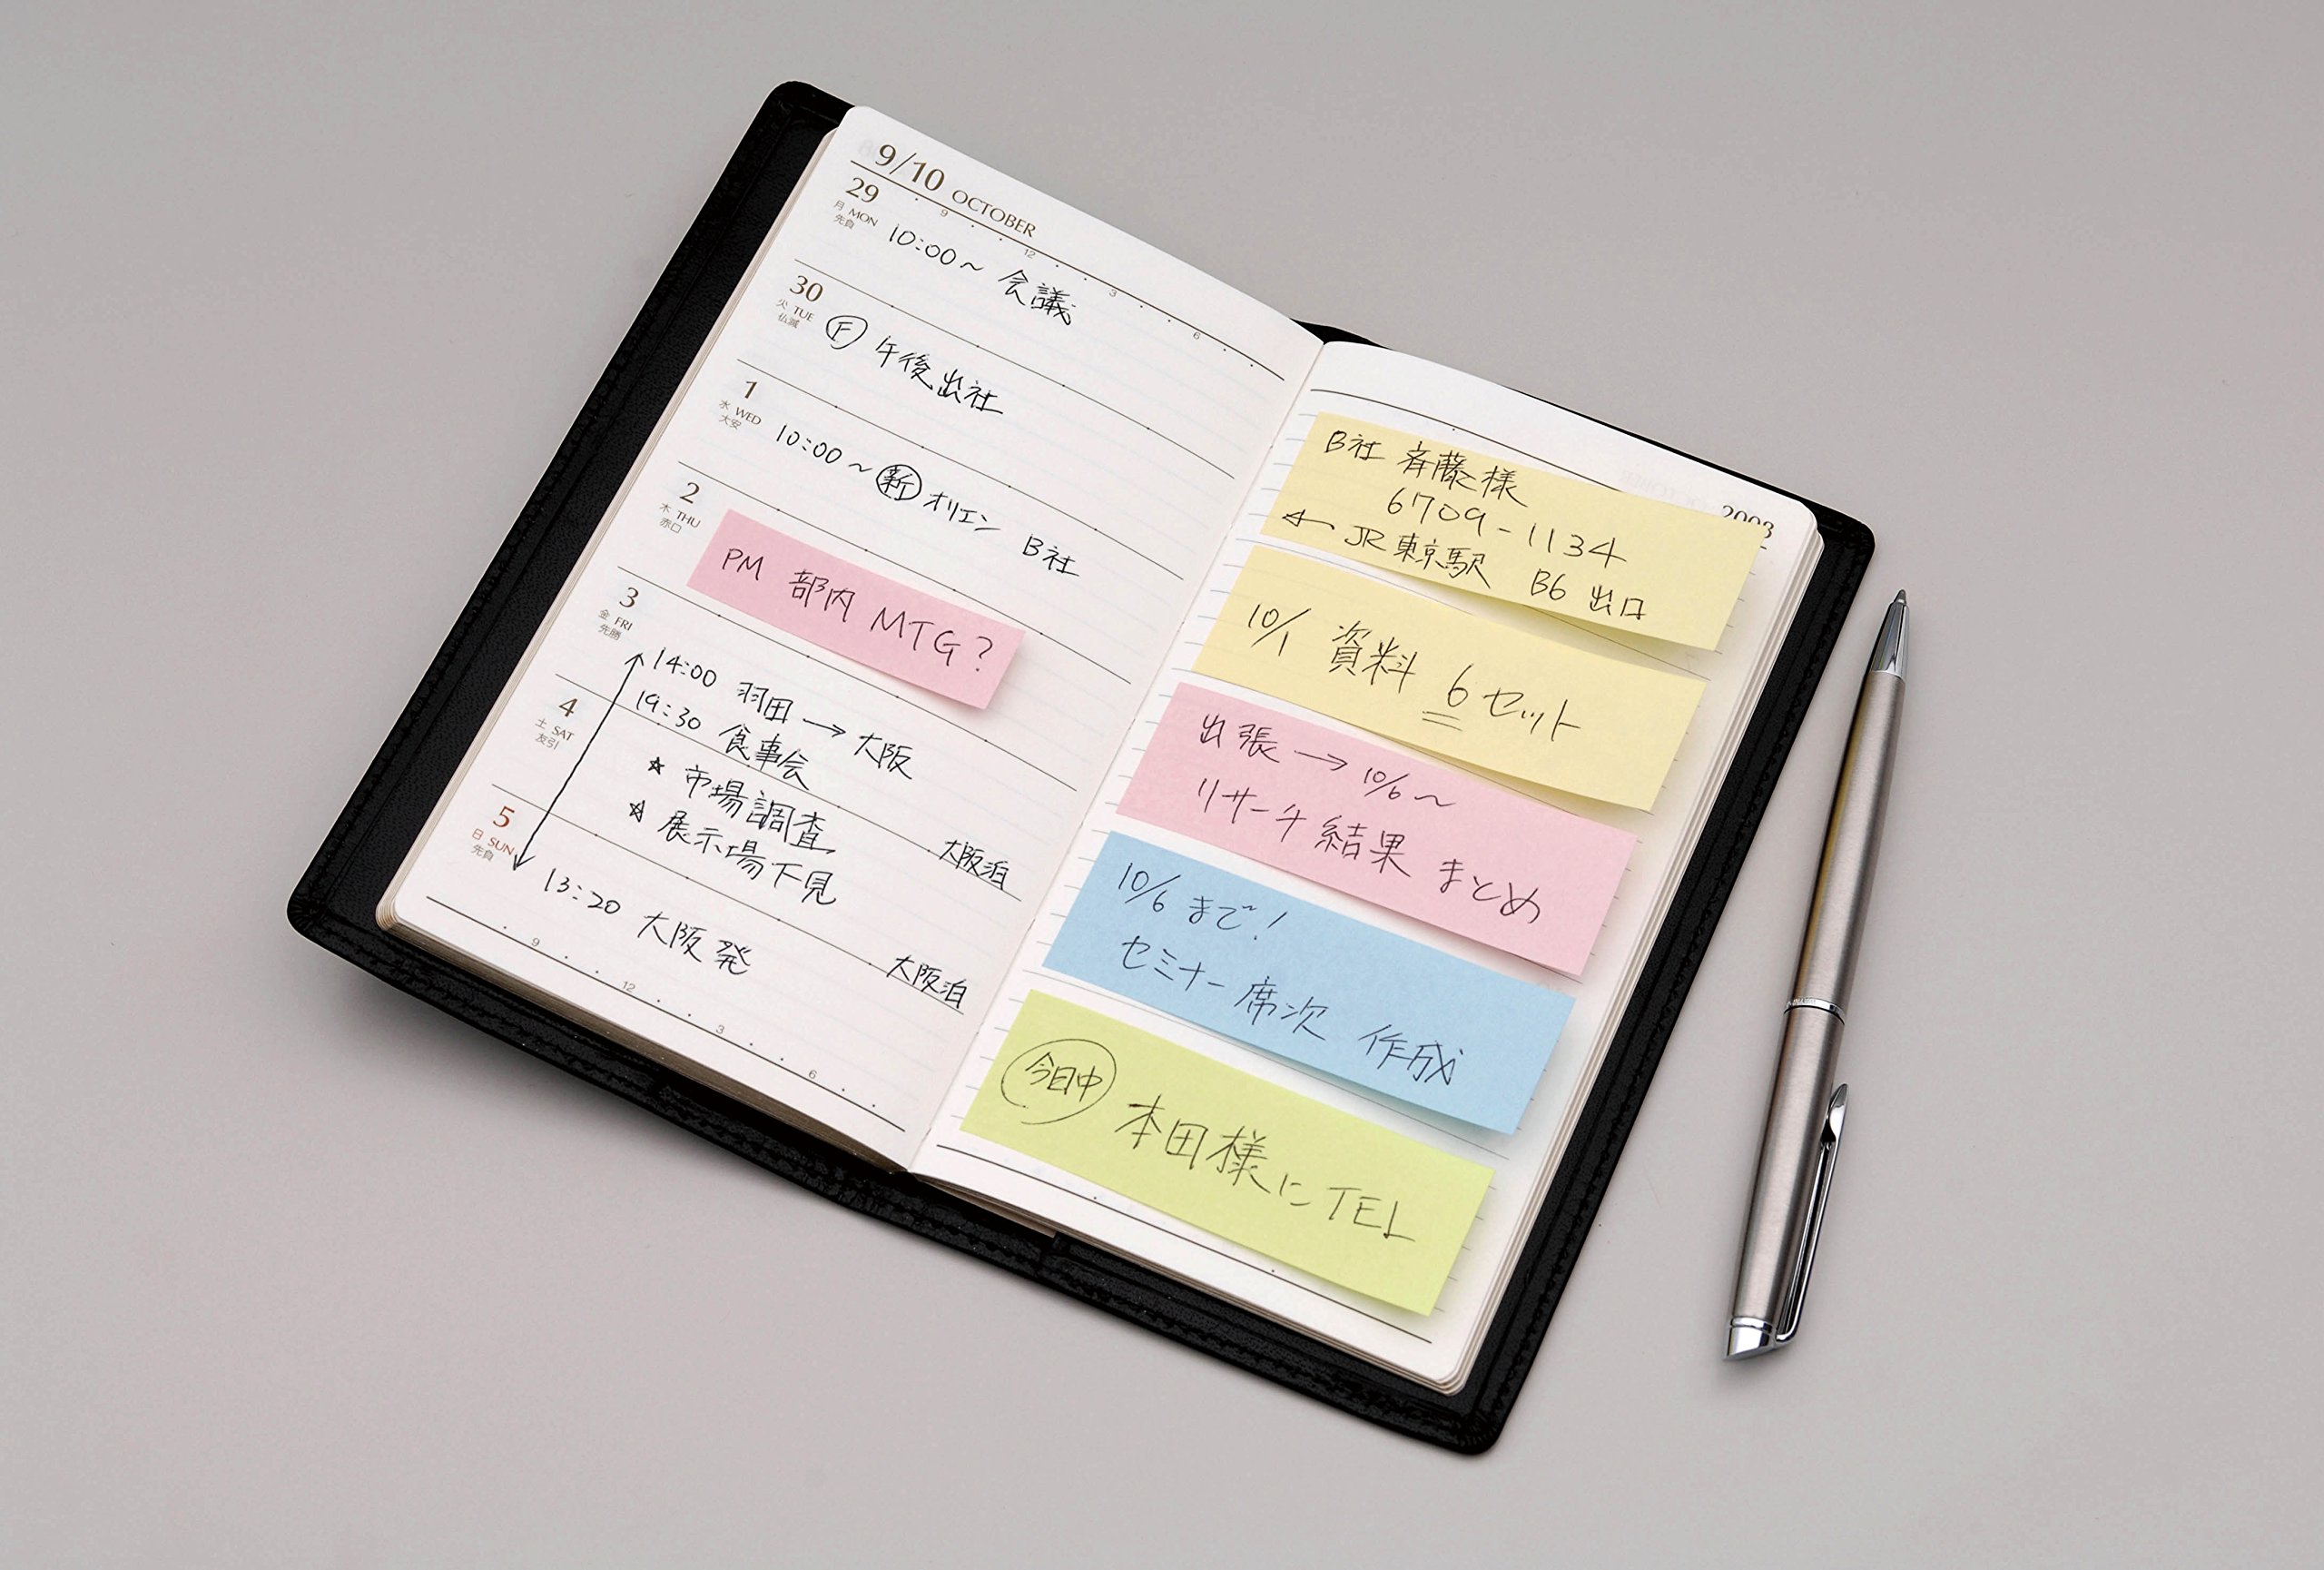 9/10 OCTOBER
9 12 3 6
29
月 MON
先負
10:00～ 会議
30
火 TUE
仏滅
F 午後出社
1
水 WED
大安
10:00～ 新 オリエン B社
2
木 THU
赤口
PM 部内 MTG?
3
金 FRI
先勝
14:00 羽田 → 大阪
19:30 食事会
大阪泊
4
土 SAT
友引
☆ 市場調査
☆ 展示場下見
大阪泊
5
日 SUN
先負
13:20 大阪発
9 12 3 6
2003
B社 斉藤様
6709-1134
← JR東京駅 B6 出口
10/1 資料 6セット
出張 → 10/6～
リサーチ結果 まとめ
10/6 まで!
セミナー席次 作成
今日中 本田様にTEL